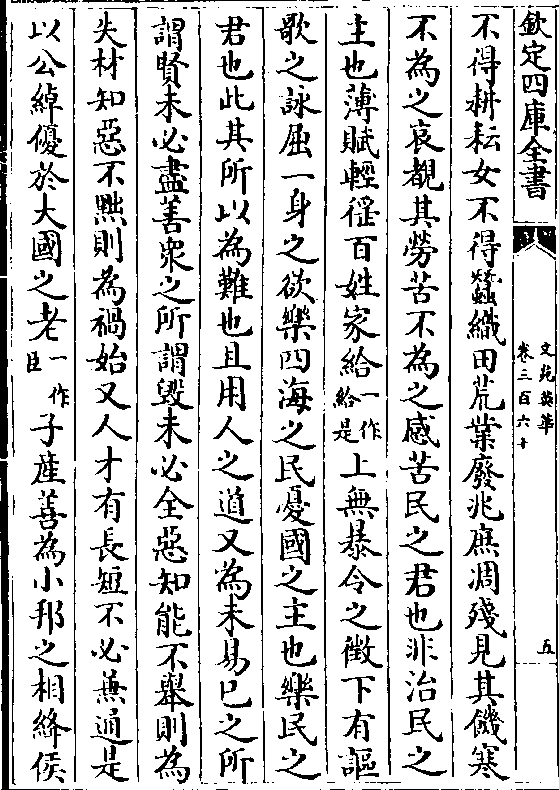 欽定四庫全書
文苑英華
卷三百六十
五
不得耕耘女不得蠶織田荒業廢兆庶凋殘見其饑寒
不為之哀覩其勞苦不為之感苦民之君也非治民之
主也薄賦輕徭百姓家給一作給是上無暴令之徵下有謳
歌之詠屈一身之欲樂四海之民憂國之主也樂民之
君也此其所以為難也且用人之道又為未易已之所
謂賢未必盡善衆之所謂毀未必全惡知能不舉則為
失材知惡不黜則為禍始又人才有長短不必兼通是
以公綽優於大國之老一作臣子產善為小邦之相絳侯